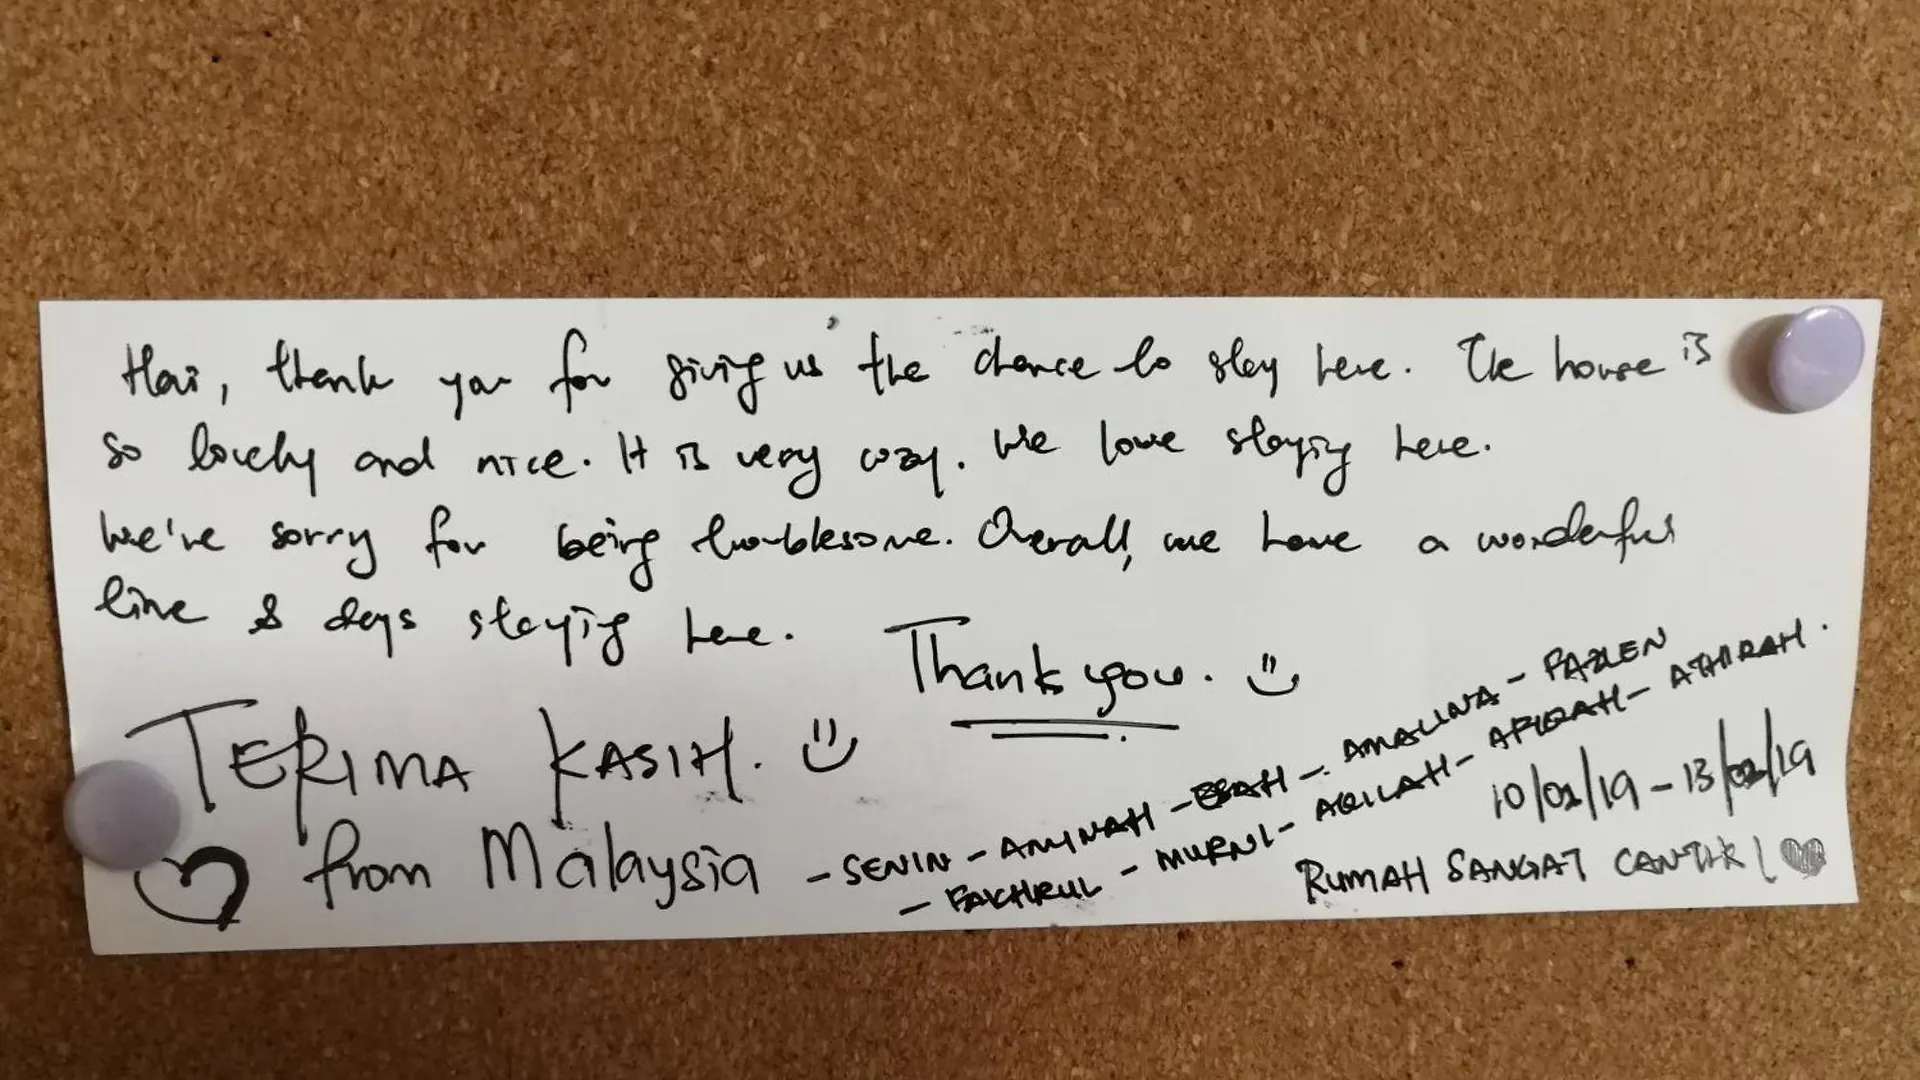 Hai, thank you for giving us the chance to stay here. The house is
so lovely and nice. It is very cozy. We love staying here.
We're sorry for being troublesome. Overall, we have a wonderful
time & days staying here.
Thank you. :)
TERIMA KASIH. :)
♡ from Malaysia
- SENIN - AMINAH - ESAH - AMALINA - FAZLEN
- FAKHRUL - MURNI - AQILAH - AFIQAH - ATHIRAH.
10/02/19 - 13/02/19
RUMAH SANGAT CANTIK! ♥